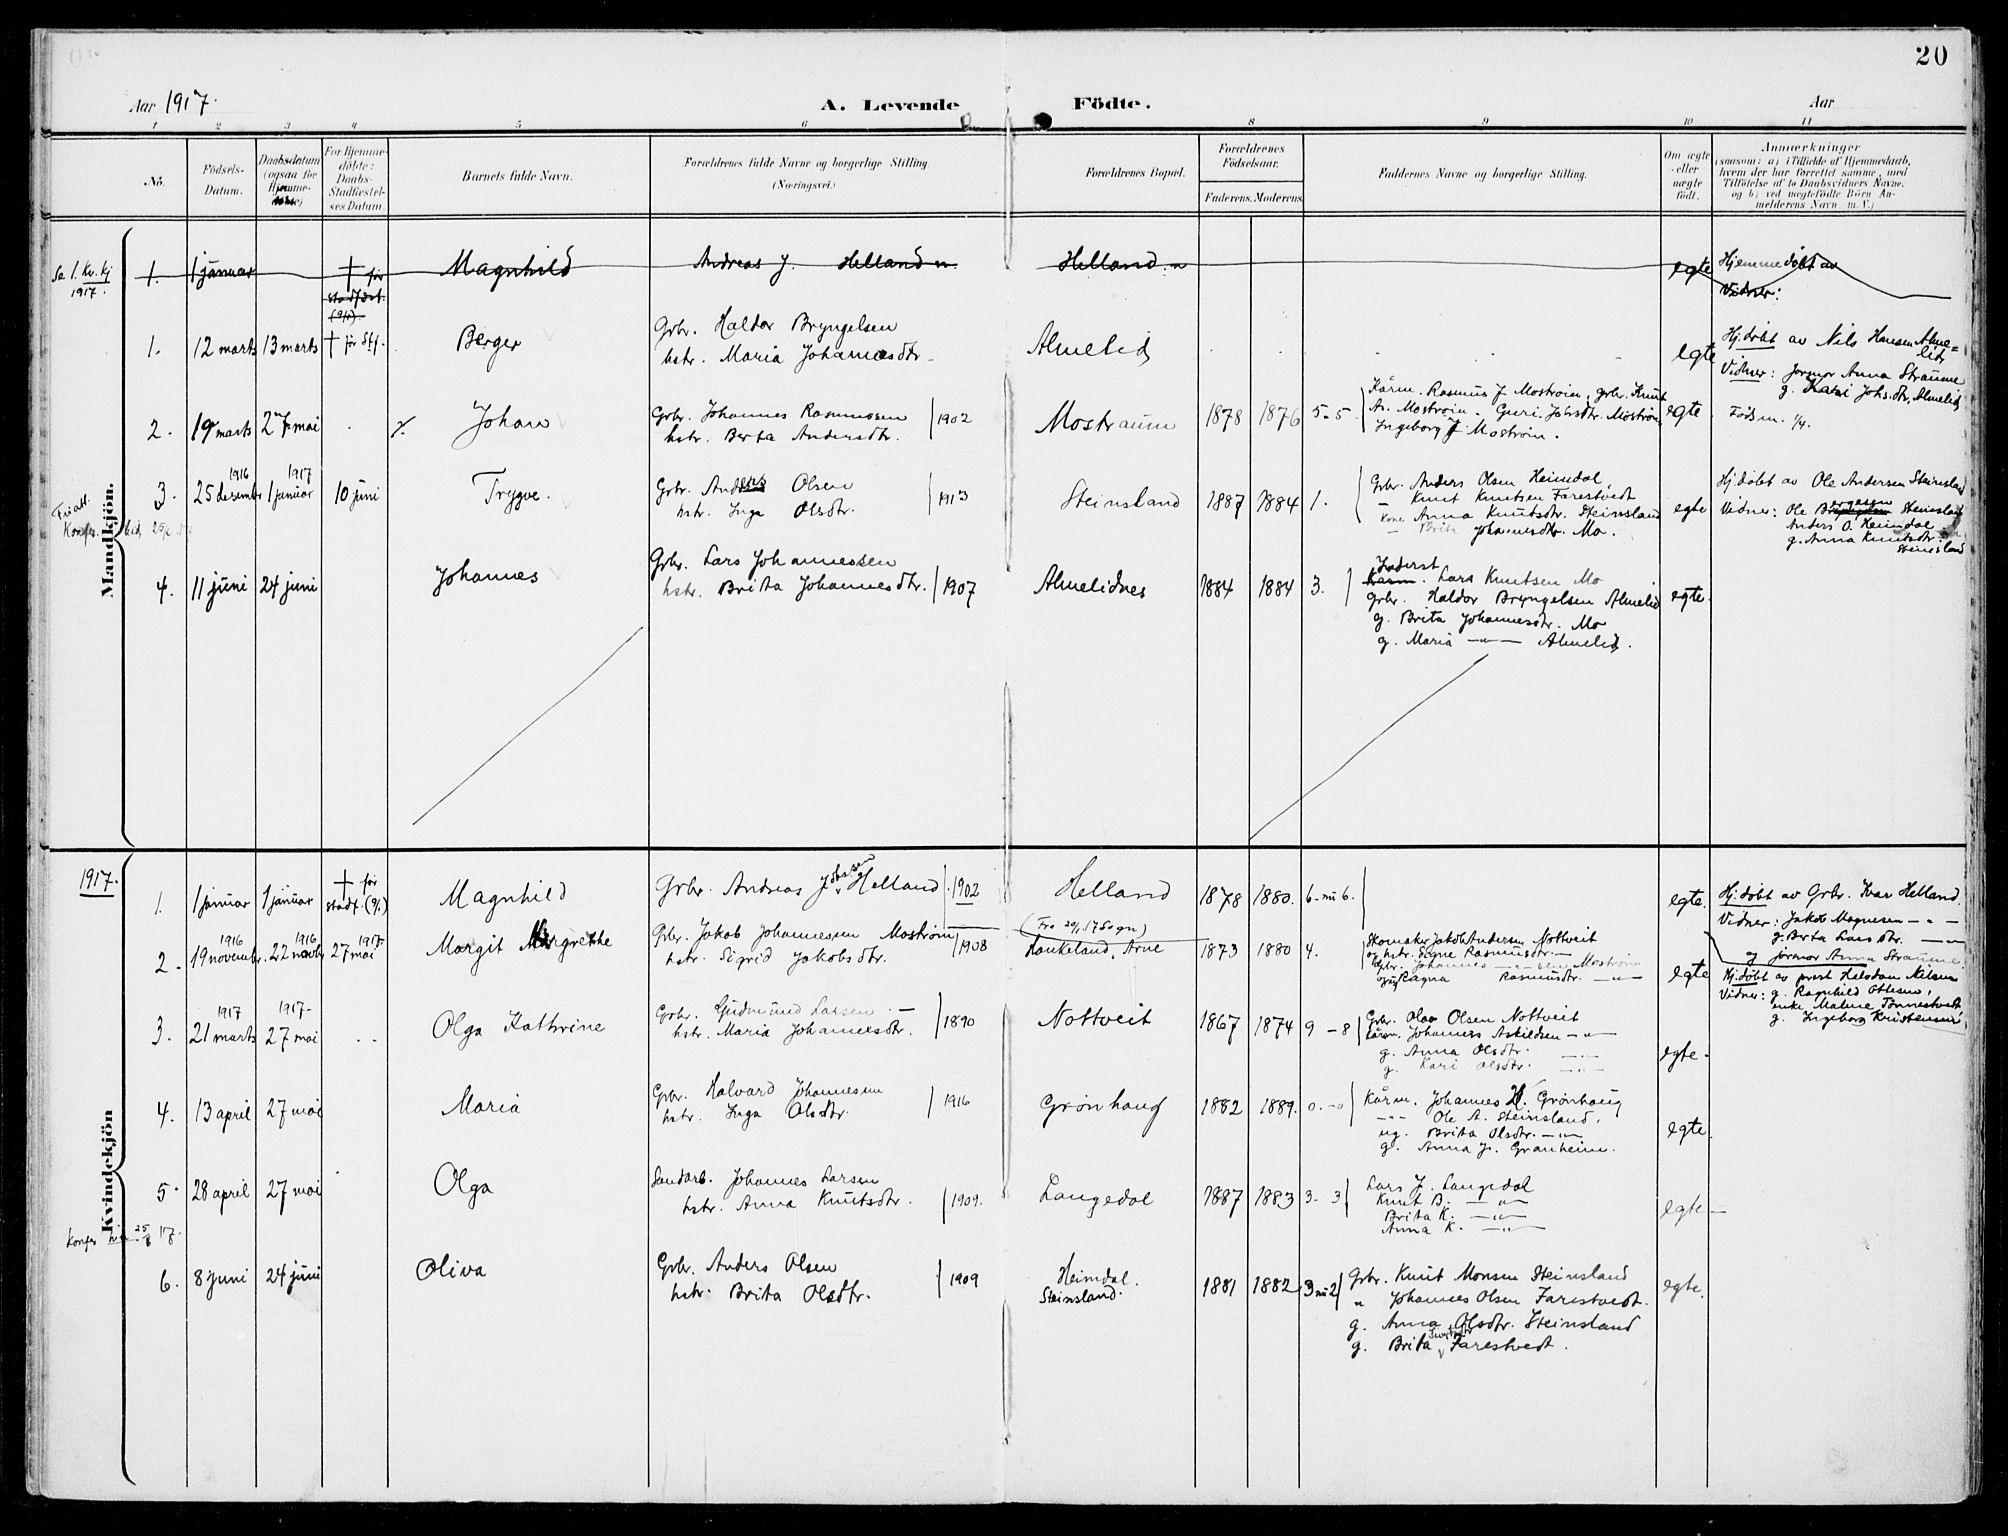 20
Aar 1917.
A. Levende Födte.
Aar
1 2 3 4 5 6 8 9 10 11
No.
Födsels-Datum.
Daabsdatum (ogsaa for Hjemme-
For Hjemme-döbte: Daabs-Stadfæstel-ses Datum.
Barnets fulde Navn.
Forældrenes fulde Navne og borgerlige Stilling. (Næringsvei.)
Forældrenes Bopæl.
Forældrenes Födselsaar.
Faderens. Moderens.
Faddernes Navne og borgerlige Stilling.
Om ægte eller uægte födt.
Anmærkninger
(saasom: a) i Tilfælde af Hjemmedaab, hvem der har forrettet samme, med Tilföielse af to Daabsvidners Navne, og b) ved uægtefödte Börn An-melderens Navn m. V.)
Mandkjön.
Se 1. Kv. kj 1917.
1. 1 januar † før stadfæst. Magnhild Andreas J. Helland Helland egte Hjemmedøbt av
Vidner:
1. 12 marts 13 marts † før Stf. Berger Grbr. Haldor Bryngelsen
hstr. Maria Johannesdtr. Almelid egte Hj. døbt av Nils Hansen Almelid
Vidner: jormor Anna Straume
g. Kari Johs.dtr. Almelid
2. 19 marts 27 mai Johan Grbr. Johannes Rasmussen
hstr. Berta Andersdtr. 1902 Mostraum 1878 1876 5-5 Kårm. Rasmus J Mostrøm, grbr. Knut
As. Mostrøm. Guri Johsdtr. Mostrøm
Ingeborg J Mostrøm. egte Føds m. 1/4.
3. 1916 25 desembr 1917 1 januar 10 juni Trygve. Grbr. Anders Olsen
hstr. Inga Olsdtr. 1913 Steinsland 1887 1884 1. Grbr. Anders Olsen Heimdal,
Knut Knutsen Farestvedt
Kone Anna Knutsdtr. Steinsland
Brita Johannesdtr. Mo. egte Hj. døbt av Ole Andersen Steinsland
Vidner: Ole Steinsland
Anders O. Heimdal
g. Anna Knutsdtr. Steinsland
4. 11 juni 24 juni Johannes Grbr. Lars Johannessen
hstr. Brita Johannesdtr. 1907 Almelidnes 1884 1884 3. Inderst
Kårm. Lars Knutsen Mo
Grbr. Haldor Bryngelsen Almelid
g. Brita Johannesdtr. Mo
g. Maria —"— Almelid. egte.
Kvindekjön
1917.
1. 1 januar 1 januar † før stadf. Magnhild Grbr. Andreas Johnsen Helland 1902 Helland 1878 1880. 6-nu 6. egte. Hj. døbt av Grbr. Ivar Helland.
Vidner: Jakob Magnesen —"—
g. Brta Larsdtr. —"—
og jormor Anna Straume.
2. 1916 19 novembr. 1916 22 novbr 1917 27 mai Margit Margrethe Grbr. Jakob Johannessen Mostrøm
hstr. Sigrid Jakobsdtr. 1908 Haukeland, Arne 1873 1880 4. Skomaker Jakob Andersen Nottveit
og hstr. Signe Rasmusdtr. —
Grbr. Johannes Mostrøm
Ragna Rasmusdtr. —"— egte Hj. døbt av prest Halvdan Nilsen
Vidner: g. Ragnhild Ottesen,
enke Malene Tønnestvedt
g. Ingeborg Kristensen
3. 1917 21 marts 1917 27 mai Olga Kathrine Grbr. Gudmund Larsen
hstr. Maria Johannesdtr. 1890 Nottveit 1867 1874 9 - 8 Grbr. Olav Olsen Nottveit
Kårm. Johannes Askildsen —"—
g. Anna Olsdtr. —"—
g. Kari Olsdtr. —"— egte.
4. 13 april 27 mai Maria Grbr. Halvard Johannessen
hstr. Inga Olsdtr. 1916 Grønhaug 1882 1889. 0.-0 Kårm. Johannes H. Grønhaug
—"— Ole A. Steinsland,
ug. Brita Olsdtr. —"—
g. Anna J. Granheim. egte.
5. 28 april 27 mai Olga Sandarb. Johannes Larsen
hstr. Anna Knutsdtr. 1909. Langedal 1887 1883 3-3 Lars J. Langedal
Knut B. —"—
Brita K. —"—
Anna K. —"— egte
6. 8 juni 24 juni Oliva Grbr. Anders Olsen
hstr. Brita Olsdtr. 1909 Heimdal.
Steinsland. 1881 1882 3 nu 2 Grbr. Knut Monsen Steinsland
" Johannes Olsen Farestvedt.
g. Anna Olsdtr. Steinsland
g. Brita Farestvedt. egte.